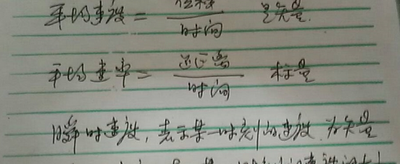 平均速度 = 位移/时间 是矢量
平均速率 = 距离/时间 标量
瞬时速度,表示某一时刻的速度 为矢量